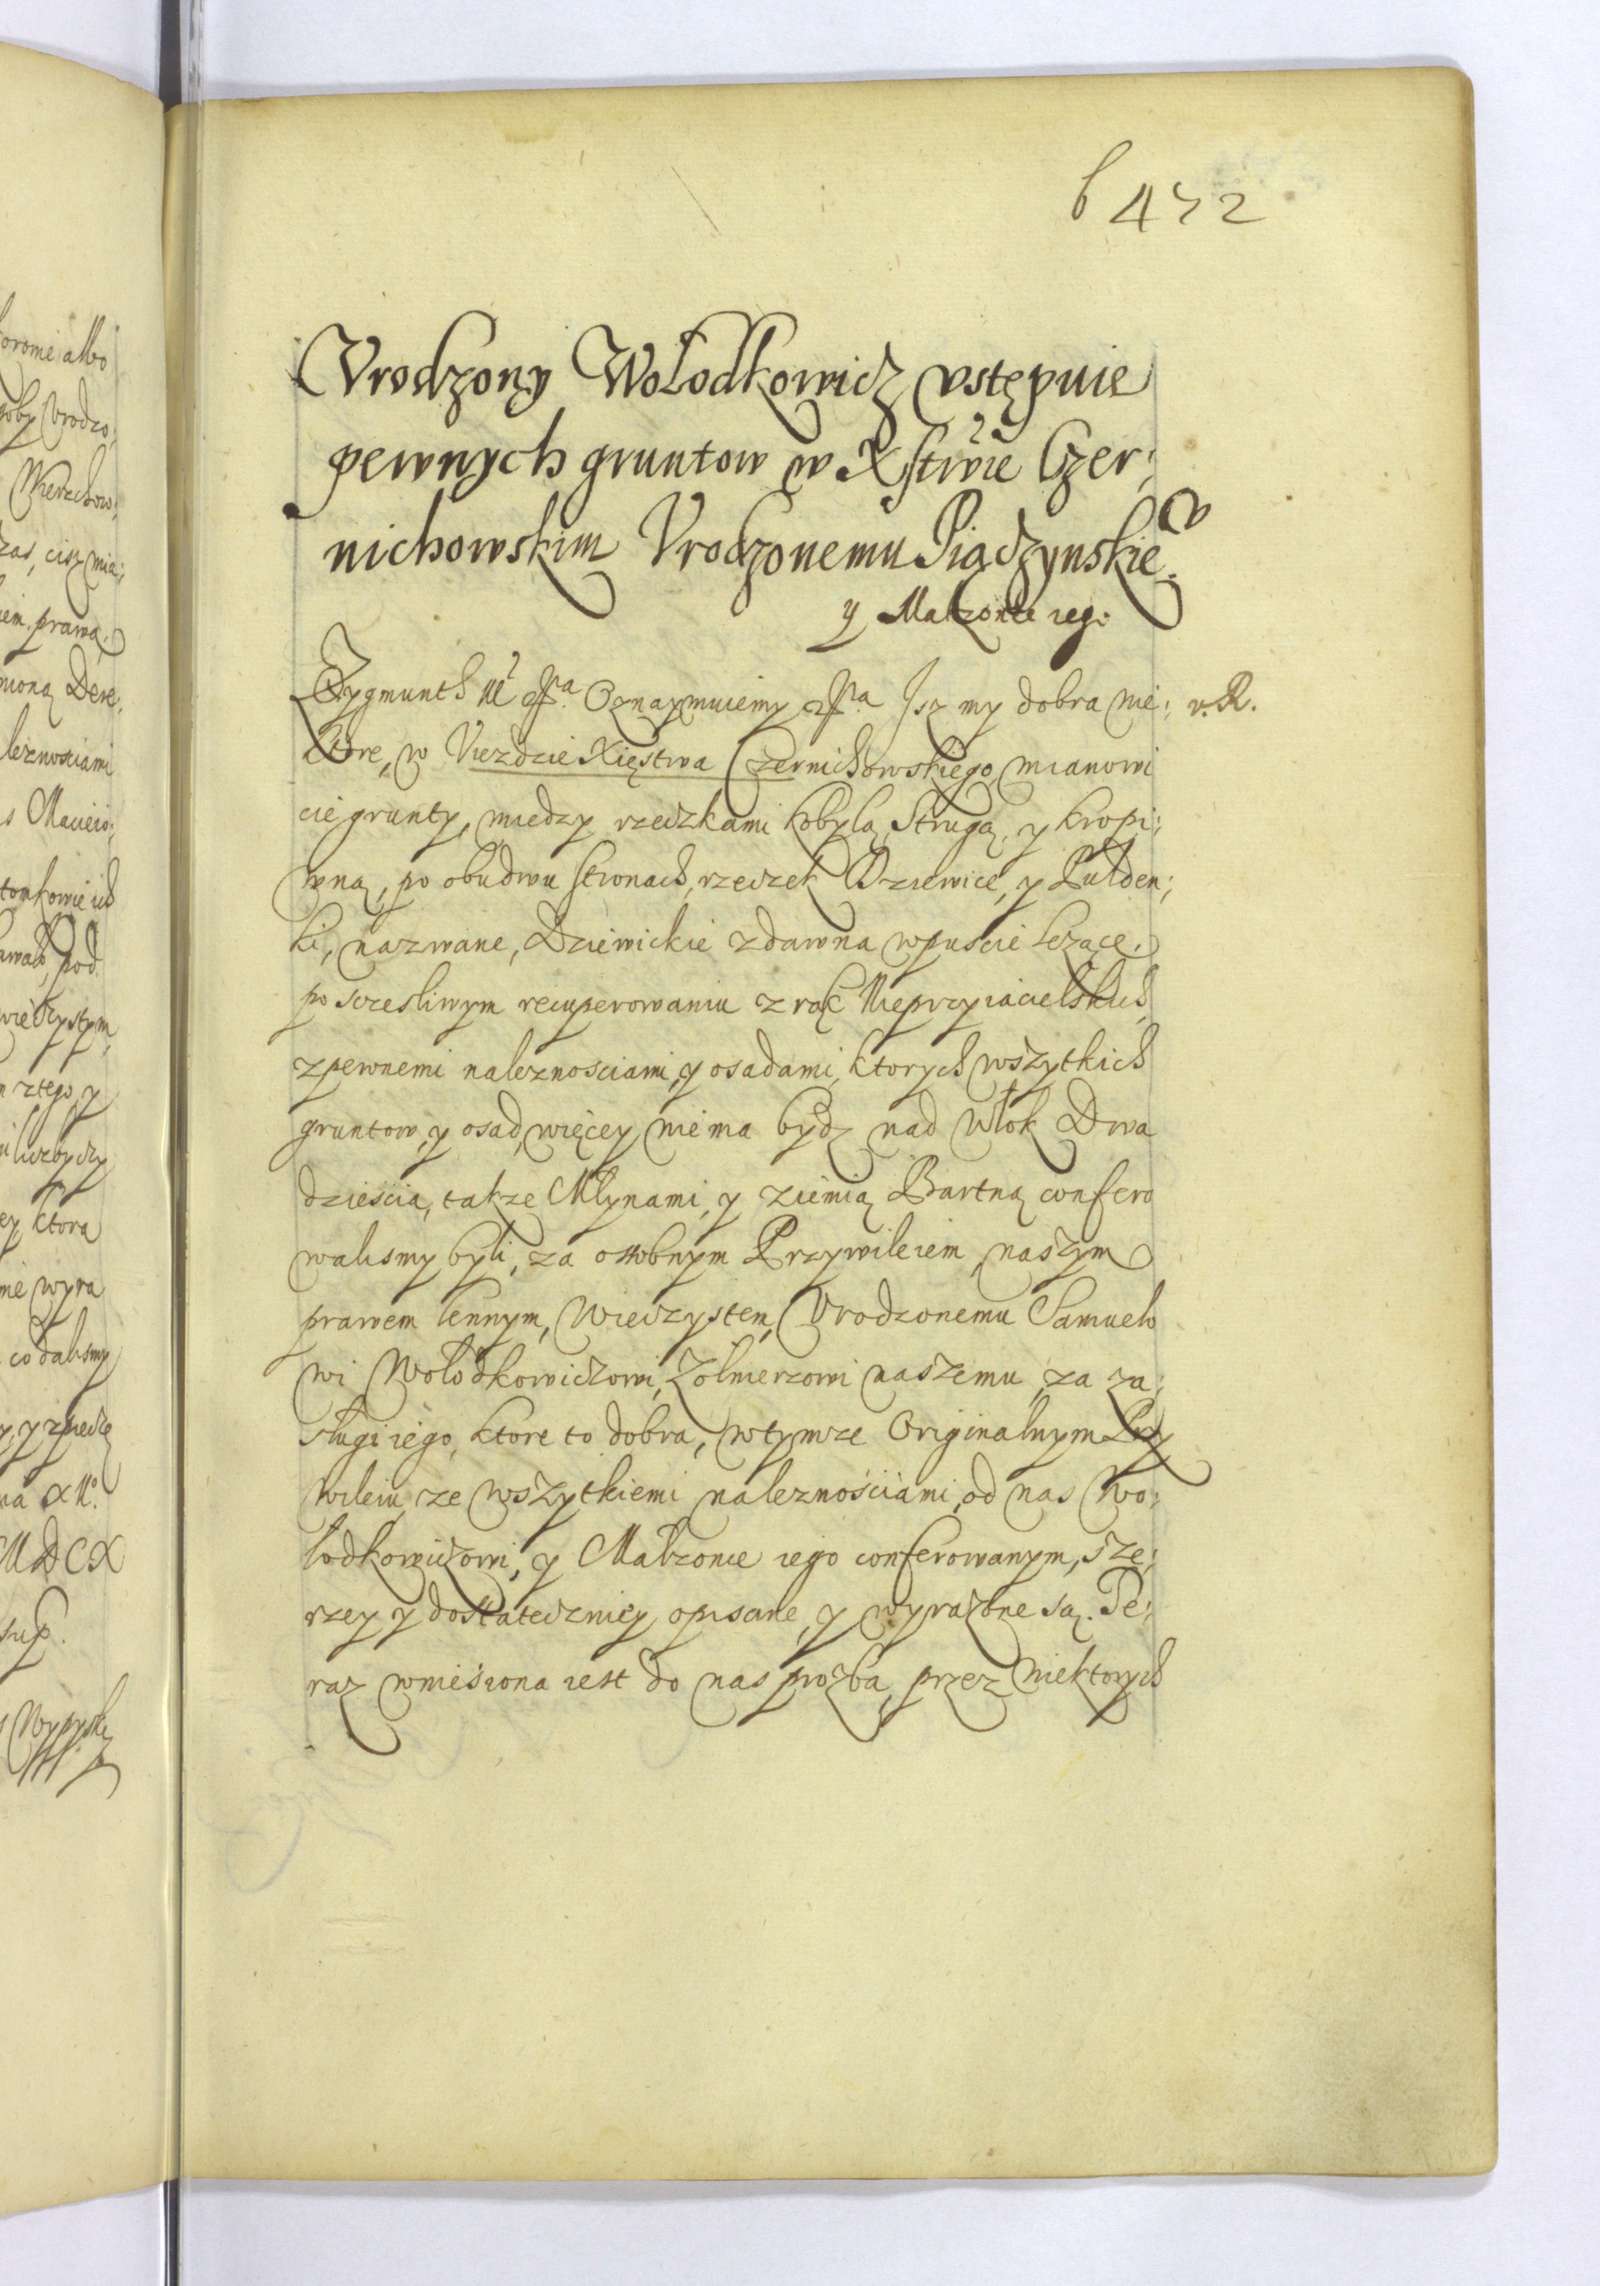 orome albo
oby Vrodzo:
Wierzchow:
zas, cisz mia:
iem prawa.
niona Dere,
leznosciami
s Macieio:
tonkowie ich
awach, pod
wieczystym,
n ztego, y
ey ktora
nie wyra
co dalismy
MDCX
sup.
6 472
Vrodzony Wołodkowicz vstępuie
pewnych gruntow w Xstwie Czer:
nichowskim Vrodzonemu Piączynskie:v
y Małzonce ieg:
Zygmunth III etc. Oznaymuiemy etc. Isz my dobra nie: v. R.
ktore, w Viezdzie Xięstwa Czernichowskiego, mianowi
cie grunty, miedzy rzeczkami Kobyla Struga, y Kropi:
wną, po obudwu stronach, rzeczek Dziewice, y Pułden:
ki, nazwane, Dziewickie zdawna wpuscie lezące,
po sczesliwym recuperowaniu z rąk Nieprzyiacielskich,
zpewnemi naleznosciami, y osadami, ktorych wszytkich
gruntow, y osad, więcey nie ma bydz nad włok Dwa
dziescia, takze Młynami, y ziemią Bartną confero
walismy byli, za osobnym Przywileiem naszym
prawem lennym, Wieczystem, Vrodzonemu Samuelo
wi Wołodkowiczowi, Zołnierzowi naszemu, za za:
sługi iego, ktore to dobra, wtymze Originalnym Przy
wileiu, ze wszytkiemi naleznościami, od nas Wo:
łodkowiczowi, y Małzonce iego conferowanym, sze:
rzey y dostateczniey opisane, y wyrazone są. Te:
raz wniesiona iest do nas prozba, przez niektorych